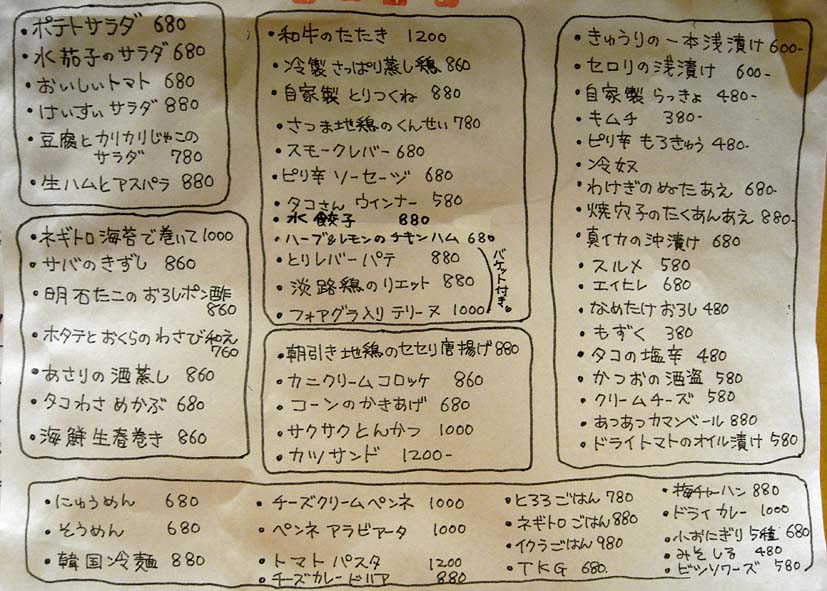 ・ポテトサラダ 680
・水茄子のサラダ 680
・おいしいトマト 680
・けいすいサラダ 880
・豆腐とカリカリじゃこの
サラダ 780
・生ハムとアスパラ 880
・ネギトロ海苔で巻いて 1000
・サバのきずし 860
・明石たこのおろしポン酢
860
・ホタテとおくらのわさび和え
760
・あさりの酒蒸し 860
・タコわさめかぶ 680
・海鮮生春巻き 860
・和牛のたたき 1200
・冷製さっぱり蒸し鶏 860
・自家製とりつくね 880
・さつま地鶏のくんせい 780
・スモークレバー 680
・ピリ辛ソーセージ 680
・タコさんウィンナー 580
・水餃子 880
・ハーブ&レモンのチキンハム 680
・とりレバーパテ 880
・淡路鶏のリエット 880
・フォアグラ入りテリーヌ 1000
バケット付き。
・朝引き地鶏のセセリ唐揚げ 880
・カニクリームコロッケ 860
・コーンのかきあげ 680
・サクサクとんかつ 1000
・カツサンド 1200-
・きゅうりの一本浅漬け 600-
・セロリの浅漬け 600-
・自家製らっきょ 480-
・キムチ 380-
・ピリ辛もろきゅう 480-
・冷奴
・わけぎのぬたあえ 680-
・焼穴子のたくあんあえ 880-
・真イカの沖漬け 680
・スルメ 580
・エイヒレ 680
・なめたけおろし 480
・もずく 380
・タコの塩辛 480
・かつおの酒盗 580
・クリームチーズ 580
・あつあつカマンベール 880
・ドライトマトのオイル漬け 580
・にゅうめん 680
・そうめん 680
・韓国冷麺 880
・チーズクリームペンネ 1000
・ペンネアラビアータ 1000
・トマトパスタ 1200
・チーズカレードリア 880
・とろろごはん 780
・ネギトロごはん 880
・イクラごはん 980
・TKG 680.
・梅チャーハン 880
・ドライカレー 1000
・小おにぎり5種 680
・みそしる 480
・ビシソワーズ 580